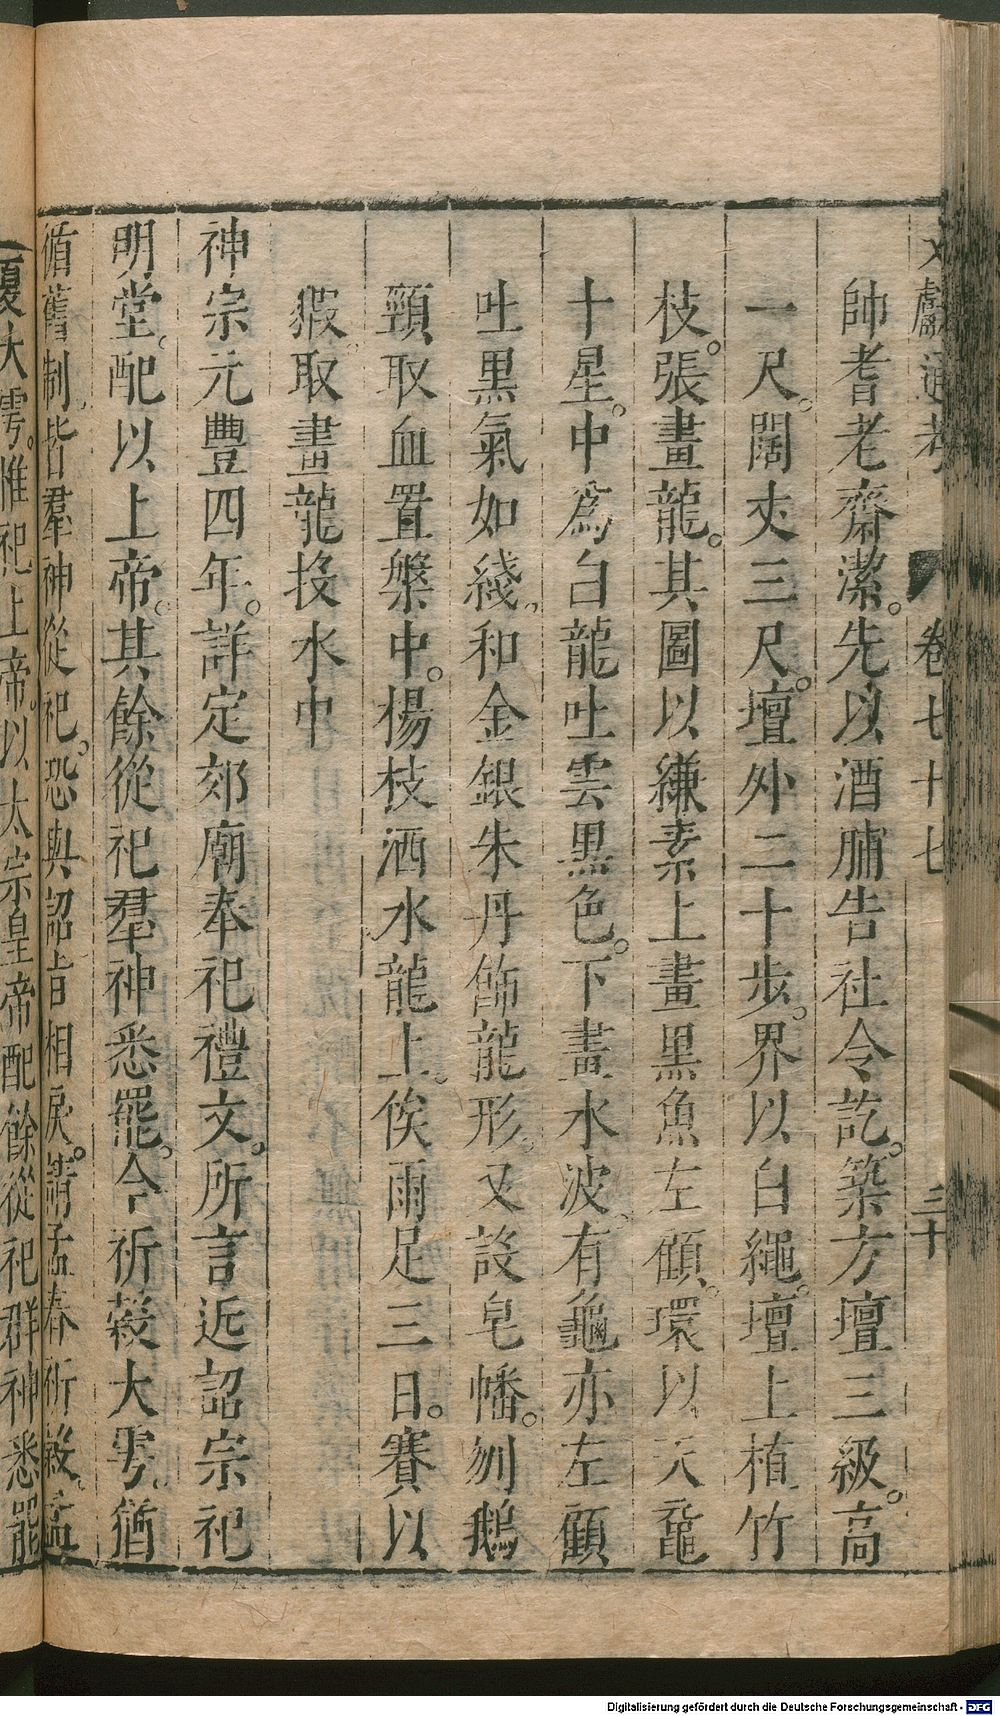 文獻通考 卷七十七 三十
帥耆老齋潔。先以酒脯告社令訖。築方壇三級。高
一尺。闊丈三尺。壇外二十步。界以白繩。壇上植竹
枝。張畫龍。其圖以縑素上畫黑魚左顧。環以天黿
十星。中爲白龍吐雲黑色。下畫水波。有龜亦左顧
吐黑氣如綫。和金銀朱丹飾龍形。又設皂幡。刎鵝
頸取血置槃中。楊枝洒水龍上。俟雨足三日。賽以
豭取畫龍投水中
神宗元豐四年。詳定郊廟奉祀禮文。所言近詔宗祀
明堂。配以上帝。其餘從祀羣神悉罷。今祈穀大雩。猶
循舊制。皆羣神從祀。恐與詔旨相戾。請孟春祈穀。孟
夏大雩。惟祀上帝。以太宗皇帝配餘從祀群神悉罷
Digitalisierung gefördert durch die Deutsche Forschungsgemeinschaft - DFG